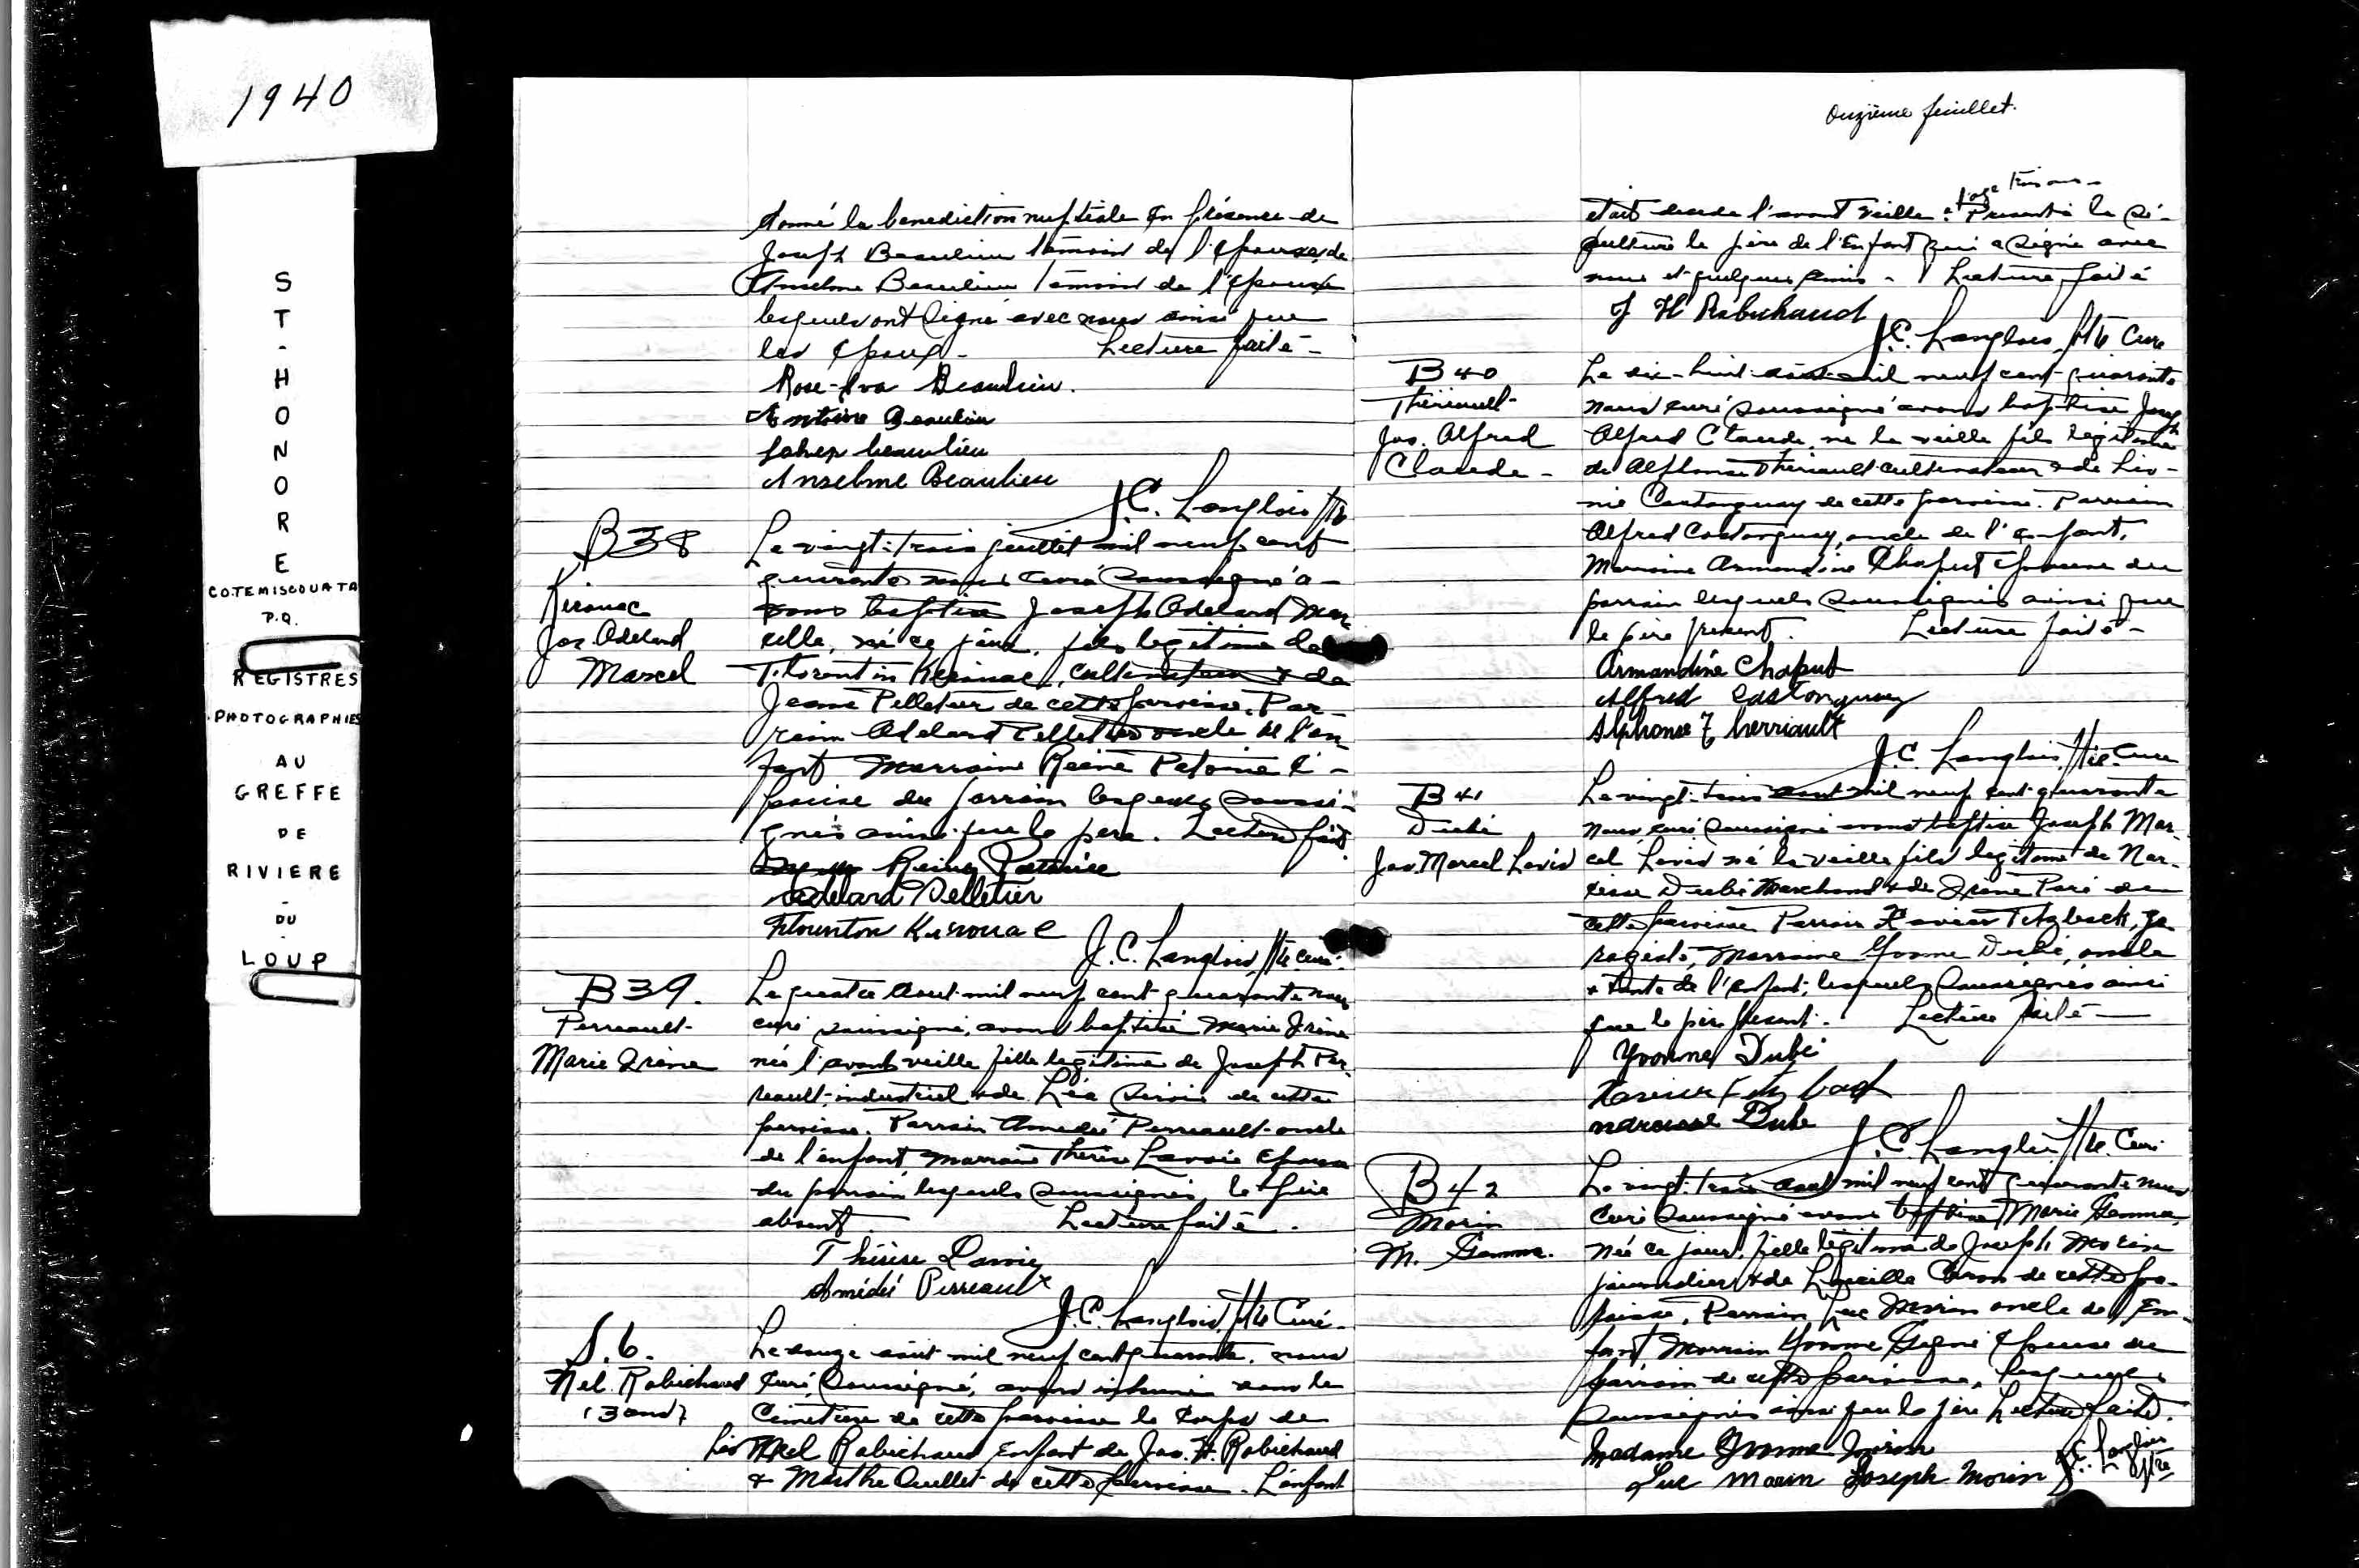 1940
S
T
-
H
O
N
O
R
E
CO.TEMISCOUATA
P.Q.
REGISTRES
PHOTOGRAPHIES
AU
GREFFE
DE
RIVIERE
-
DU
-
LOUP
donné la benediction nuptiale en présence de
Joseph Beaulieu témoin de l'épouse, de
Anselme Beaulieu témoin de l'époux
lesquels ont signé avec nous ainsi que
les époux - Lecture faite -
Rose-Eva Beaulieu.
Antoine Beaulieu
Beaulieu
Anselme Beaulieu
J.C. Langlois Ptre
B38
Kirouac
Jos Adelard
Marcel
Le vingt-trois juillet mil neuf cent
quarante nous curé soussigné a-
vons baptisé Joseph Adelard Mar-
celle, né ce jour, fils legitime de
Florentin Kirouac, cultivateur & de
Jeanne Pelletier de cette paroisse. Par-
rain Adelard Pelletier oncle de l'en-
fant Marraine Reine Patoine é-
pouse du parrain lesquels soussi-
gnés ainsi que le pere. Lecture faite
Reine Patoine
Adelard Pelletier
Kirouac
J.C. Langlois, Ptre curé.
B39.
Perreault-
Marie Irène
Le quatre Aout mil neuf cent quarante nous
curé soussigné, avons baptisé Marie Irène
née l'avant veille fille legitime de Joseph Per-
reault, industriel & de Léa Sirois de cette
paroisse. Parrain Amedé Perreault oncle
de l'enfant, Marraine Thérèse Lavoie épouse
du parrain lesquels soussignés, le père
absent. Lecture faite.
Thérèse Lavoie
Amédé Perreault
J.C. Langlois, Ptre Curé.
S.6.
Nel. Robichaud
(3 ans)
Le douze août mil neuf cent quarante, nous
Curé, soussigné, avons inhumé dans le
Cimetière de cette paroisse le corps de
Robichaud Enfant de Jos. H. Robichaud
& Marthe Ouellet de cette paroisse. L'enfant
Onzième feuillet.
était decede l'avant veille. age trois ans -
Presents à la sé-
pulture le père de l'Enfant qui a signé avec
nous et quelques amis - Lecture faite
J H Robichaud
J.C. Langlois, Ptre Curé
B40
Theriault-
Jos. Alfred
Claude -
Le dix-huit août mil neuf cent quarante
nous curé soussigné avons baptisé Joseph
Alfred Claude, né la veille fils légitime
de Alphonse Thériault cultivateur & de Liv-
nie Castonguay de cette paroisse. Parrain
Alfred Castonguay, oncle de l'enfant,
Marraine Armandine Chaput épouse du
parrain lesquels soussignés ainsi que
le père present. Lecture faite -
Armandine Chaput
Alfred Castonguay
Alphonse Therriault
J.C. Langlois, Ptre. Curé
B41
Dubé
Jos. Marcel Lévis
Le vingt-trois aout mil neuf cent quarante
nous curé soussigné avons baptisé Joseph Mar-
cel Levis né la veille fils legitime de Nar-
cisse Dubé Marchand & de Irène Paré de
cette paroisse Parrain Xavier Fitzback, ga-
ragiste, Marraine Yvonne Dubé, oncle
& tante de l'enfant, lesquels soussignés ainsi
que le père present. Lecture faite -
Yvonne Dubé
Xavier Fitzback
Narcisse Dube
J.C. Langlois, Ptre. Curé
B42
Morin
M. Gemma.
Le vingt-trois aout mil neuf cent quarante nous
Curé soussigné avons baptisé Marie Gemma,
née ce jour, fille légitime de Joseph Morin
journalier & de Lucille Caron de cette pa-
roisse, Parrain Luc Morin oncle de l'En-
fant Marraine Yvonne Gagné épouse du
parrain de cette paroisse, lesquels
soussignés ainsi que le père Lecture faite.
Madame Yvonne Morin
Luc Morin Joseph Morin J.C. Langlois
Ptre